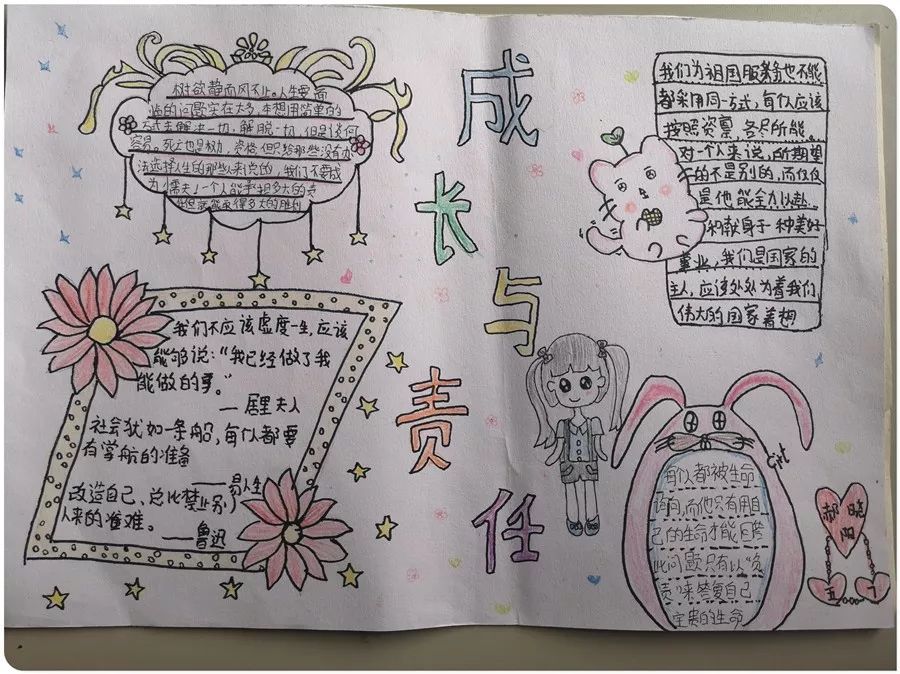 成长与责任
树欲静而风不止。人生要面
临的问题实在太多,本想用简单的
方式去解决一切,解脱一切,但是谈何
容易。死亡也是权力,资格但只给那些没有办
法选择人生的那些人来说的,我们不要成
为懦夫,一个人能承担多大的责
任就能取得多大的胜利
我们不应该虚度一生,应该
能够说:“我已经做了我
能做的事。”
—居里夫人
社会犹如一条船,每个人都要
有掌舵的准备
—易卜生
改造自己,总比禁止别
人来的准难。
—鲁迅
我们为祖国服务也不能
都采用同一方式,每个人应该
按照资禀,各尽所能。
对一个人来说,所期望
的不是别的,而仅仅
是他能全力以赴
和献身于一种美好
事业,我们是国家的
主人,应该处处为着我们
伟大的国家着想
每个人都被生命
询问,而他只有用自
己的生命才能回答
此问题只有以“负
责”来答复自己
宝贵的生命
Girl
郝晓
阳
五 一